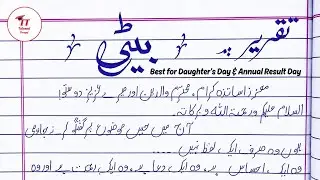 تقریر بیٹی پر
Best for Daughter's Day & Annual Result Day
معزز اساتذہ کرام، محترم والدین اور میرے عزیز دوستو!
السلام علیکم ورحمۃ اللہ وبرکاتہ۔
آج میں جس موضوع پر گفتگو کرنے جا رہی
ہوں وہ صرف ایک لفظ نہیں ....
وہ ایک احساس ہے، وہ ایک دعا ہے، وہ ایک رحمت ہے اور وہ